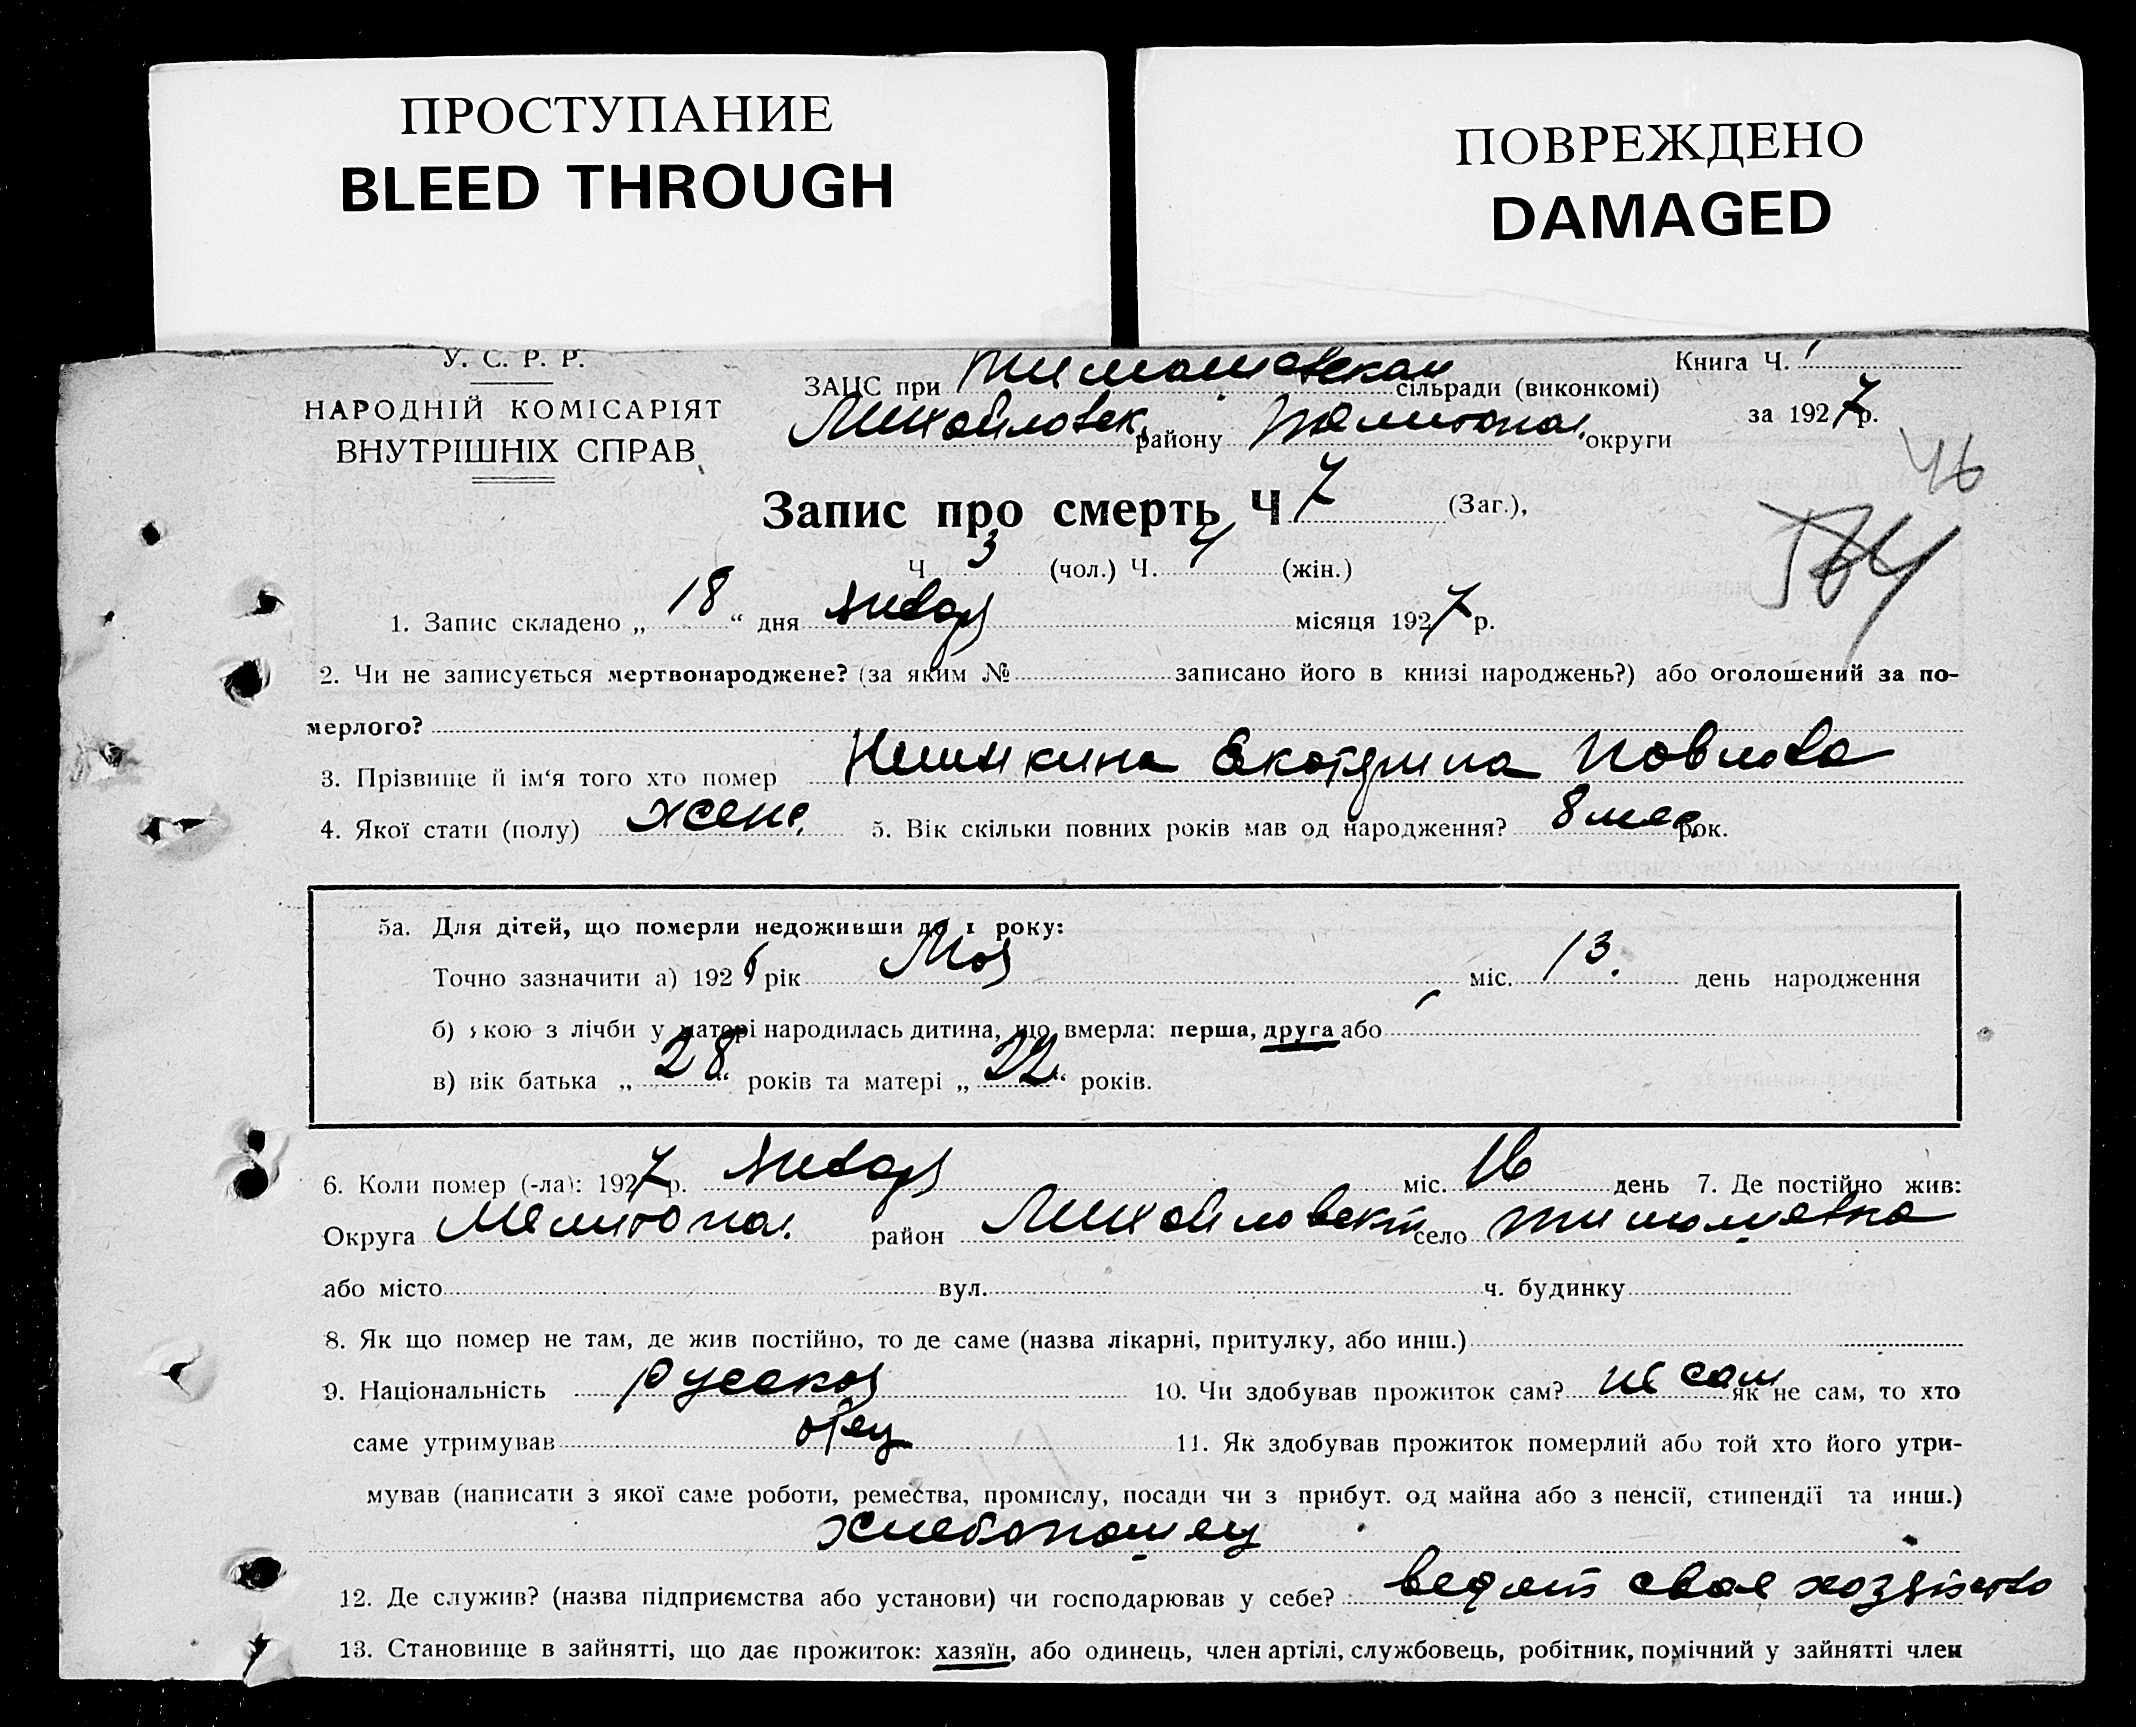 ПРОСТУПАНИЕ
BLEED THROUGH
ПОВРЕЖДЕНО
DAMAGED
У. С. Р. Р.
НАРОДНІЙ КОМІСАРІЯТ
ВНУТРІШНІХ СПРАВ
Книга Ч. 1
ЗАЦС при Тимошовском сільради (виконкомі)
за 1927 р.
Михайловск. району Мелитопол. округи
46
Запис про смерть Ч 7 (Заг.),
Ч 3 (чол.) Ч. 4 (жін.)
1. Запис складено „ 18 “ дня Января місяця 1927 р.
2. Чи не записується мертвонароджене? (за яким № записано його в книзі народжень?) або оголошений за по-
мерлого?
3. Прізвище й ім‘я того хто помер Екатерина Повлова
4. Якої стати (полу) женс. 5. Вік скільки повних років мав од народження? 8 мес. рок.
5а. Для дітей, що померли недоживши до 1 року:
Точно зазначити а) 1926 рік Моя міс. 13. день народження
б) якою з лічби у матері народилась дитина, що вмерла: перша, друга або
в) вік батька „ 28 “ років та матері „ 22 “ років.
6. Коли помер (-ла): 1927 р. Января міс. 16 день 7. Де постійно жив:
Округа Мелитопол. район Михайловский село Тимошовка
або місто вул. ч. будинку
8. Як що помер не там, де жив постійно, то де саме (назва лікарні, притулку, або инш.)
9. Національність русская 10. Чи здобував прожиток сам? не сам як не сам, то хто
саме утримував отец 11. Як здобував прожиток померлий або той хто його утри-
мував (написати з якої саме роботи, ремества, промислу, посади чи з прибут. од майна або з пенсії, стипендії та инш.)
хлебопашец
12. Де служив? (назва підприємства або установи) чи господарював у себе? ведет свое хозяйство
13. Становище в зайнятті, що дає прожиток: хазяїн, або одинець, член артілі, службовець, робітник, помічний у зайнятті член